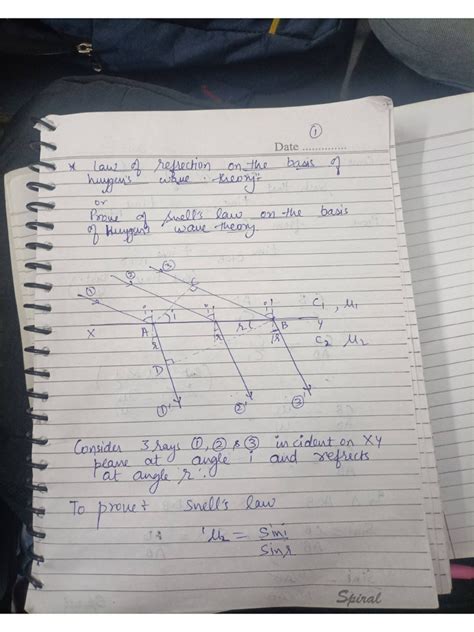 ①
Date ..............
* Law of refrection on the basis of
huygen's wave theory:-
or
Prove of snell's law on the basis
of Huygen's wave theory.
① ② ③ C
i i' i i C₁, μ₁
X A B Y
r r r r C₂ μ₂
D
①' ②' ③'
Consider 3 rays ①, ② & ③ incident on XY
plane at angle i and refrects
at angle r.
To prove:- Snell's law
¹μ₂ = Sini
Sinr
Spiral